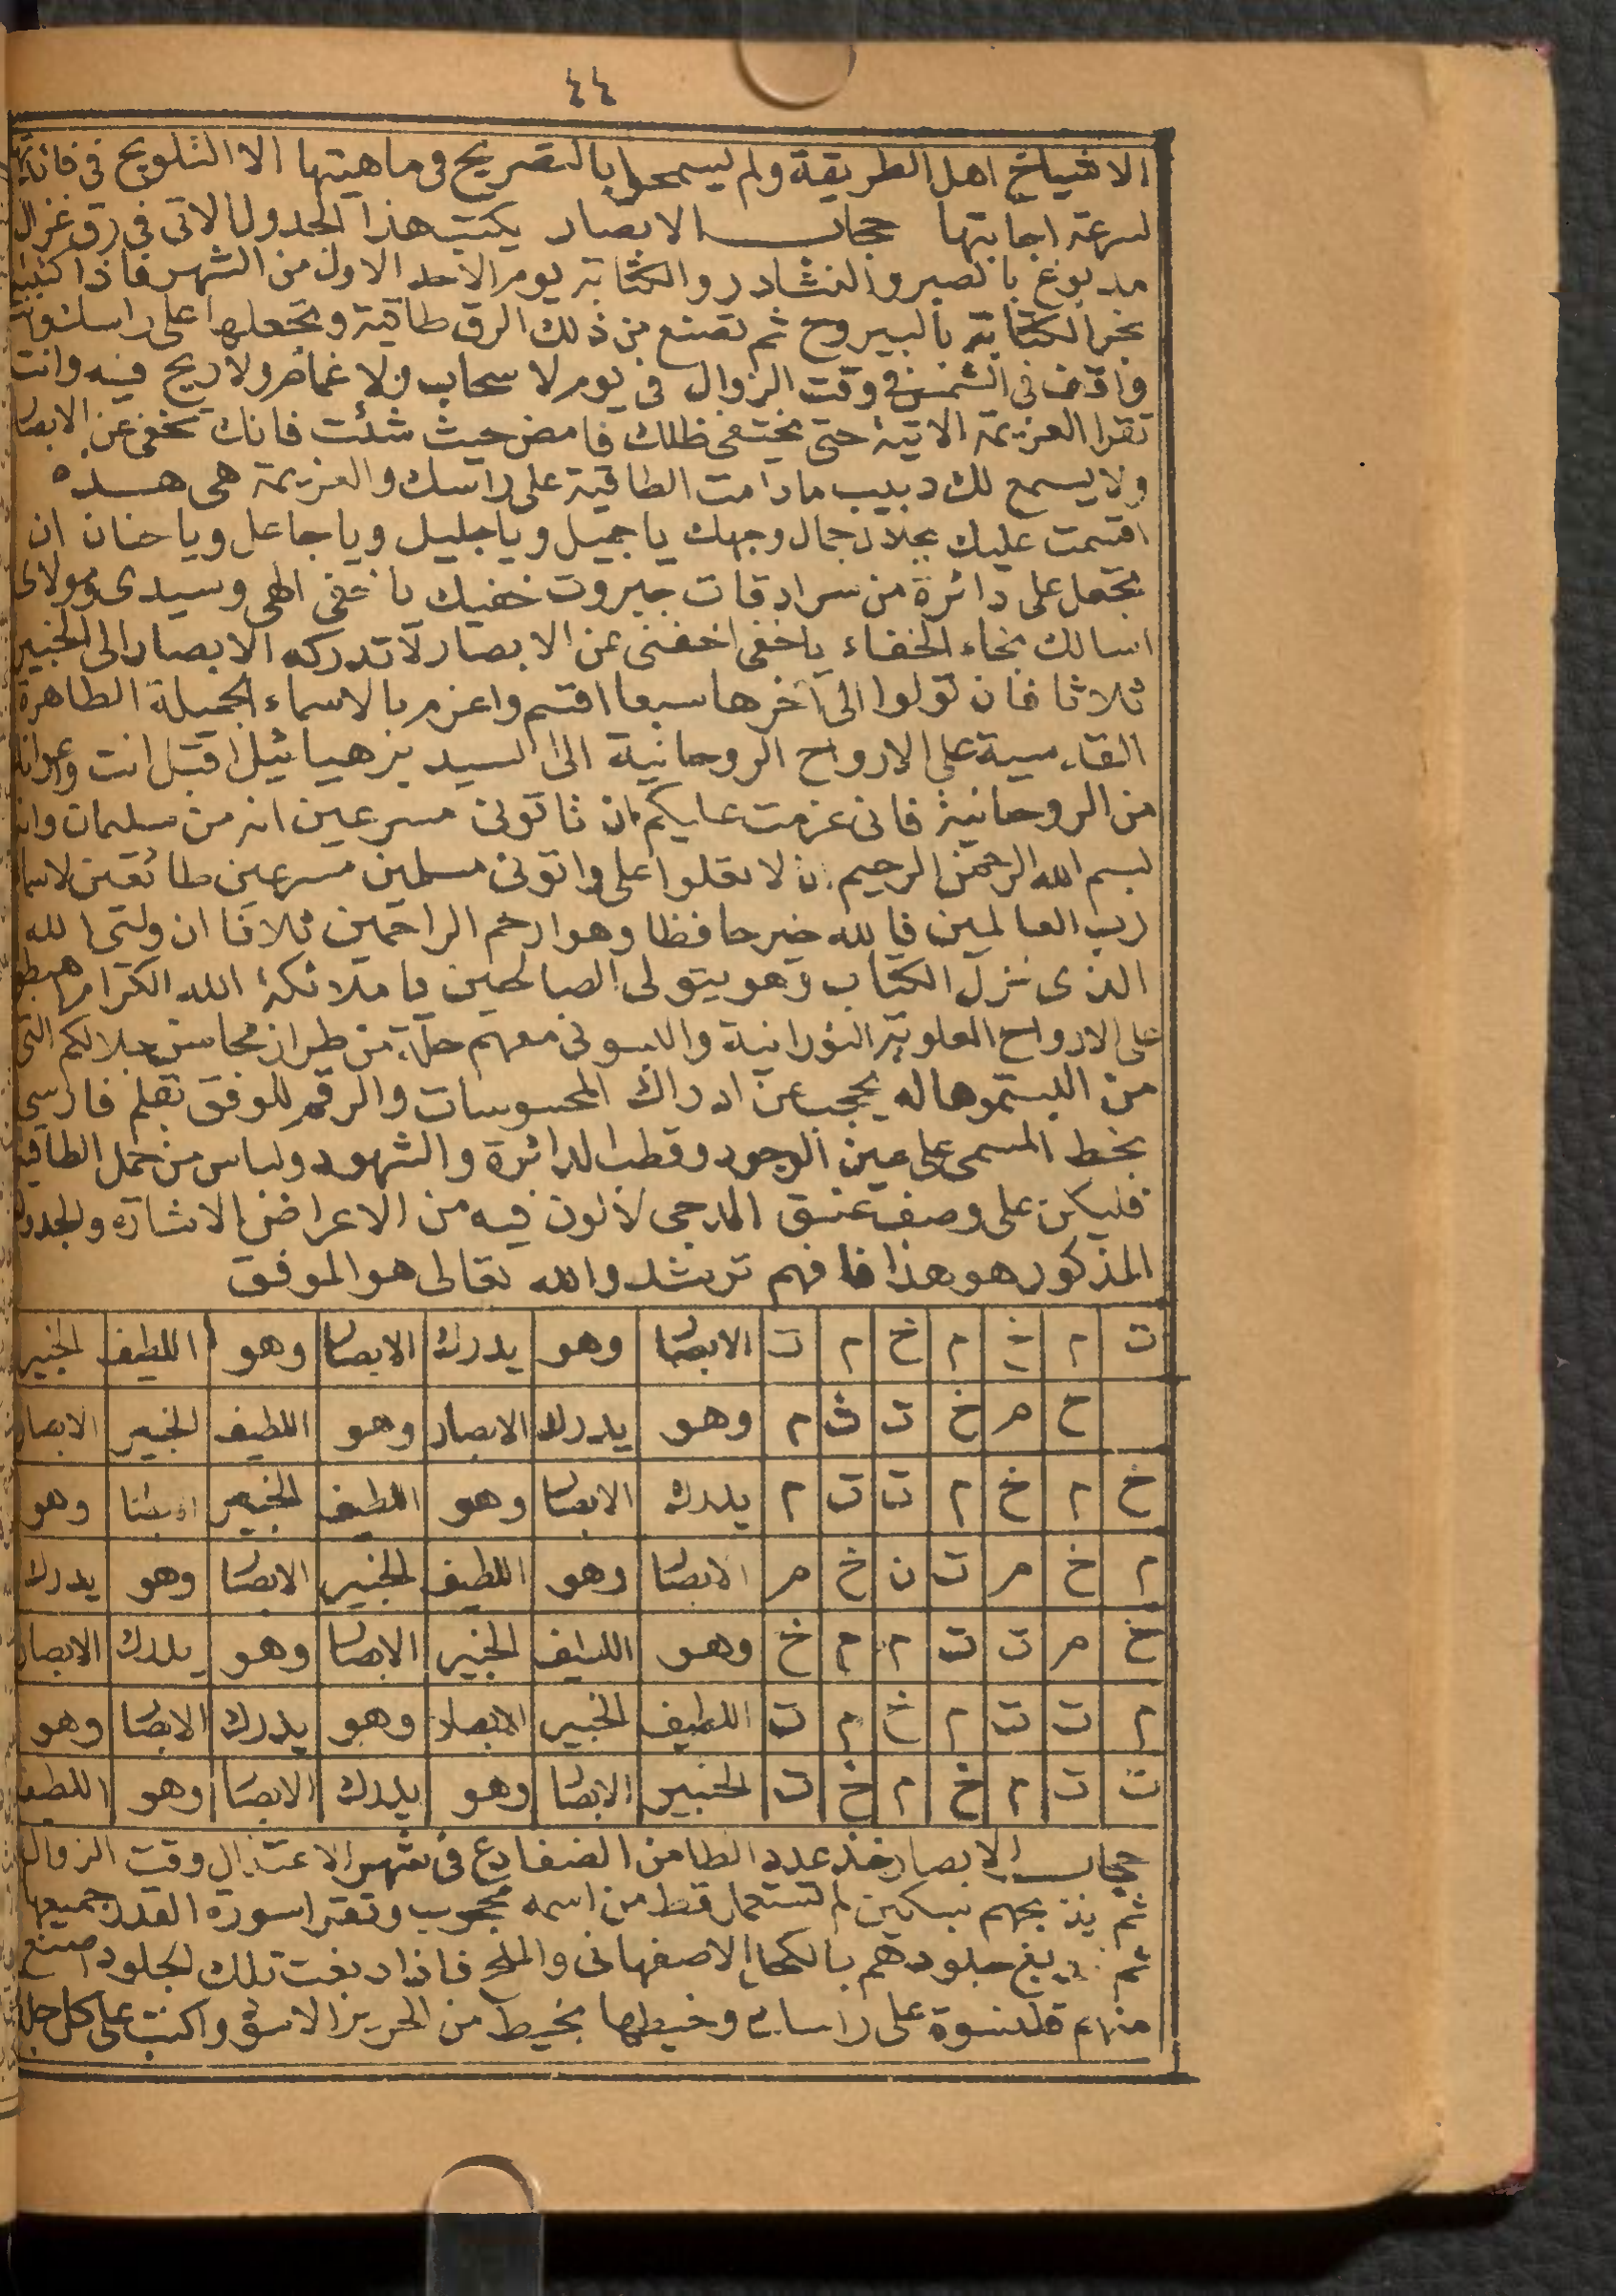 ٤٤
الاشياخ اهل الطريقة ولم يسمحوا بالتصريح فى ماهيتها الا التلويح فى فائدتها
لسرعة اجابتها حجاب الابصار يكتب هذا الجدول الاتى فى رق غزال
مدبوغ بالصبر والنشادر والكتابة يوم الاحد الاول من الشهر فاذا كتبته
بخر الكتابة باليبروح ثم تصنع من ذلك الرق طاقية وتجعلها على راسك وانت
واقف فى الشمس فى وقت الزوال فى يوم لا سحاب ولا غمام ولا ريح فيه وانت
تقرا العزيمة الاتية حتى يختفى ظلك فامض حيث شئت فانك تخفى عن الابصار
ولا يسمع لك دبيب مادامت الطاقية على راسك والعزيمة هى هذه
اقسمت عليك بجلال جمال وجهك يا جميل ويا جليل ويا جاعل ويا حنان ان
تجعل على دائرة من سرادقات جبروت خفيك يا خفى الهى وسيدى ومولاى
اسالك بخاء الخفاء يا خفى اخفنى عن الابصار لا تدركه الابصار الى الخبير
ثلاثا فان تولوا الى آخرها سبعا اقسم واعزم بالاسماء الجميلة الطاهرة
القادسية على الارواح الروحانية الى السيد يزهيائيل اقبل انت واعوانك
من الروحانية فانى عزمت عليكم ان تاتونى مسرعين انه من سليمان وانه
بسم الله الرحمن الرحيم ان لا تعلوا على واتونى مسلمين مسرعين طائعين لاسماء
رب العالمين فالله خير حافظا وهو ارحم الراحمين ثلاثا ان وليى الله
الذى نزل الكتاب وهو يتولى الصالحين يا ملائكة الله الكرام
على الارواح العلوية النورانية والبسونى معهم حلة من طراز محاسن جلالكم التى
من البستموها له يحجب عن ادراك المحسوسات والرقم للوفق بقلم فارسى
بخط المسمى على عين الوجود وقطب الدائرة والشهود ولباس من حمل الطاقية
فليكن على وصف عنق المارجى لالون فيه من الاعراض الاشارة والجدول
المذكور هو هذا فافهم ترشد والله تعالى هو الموفق
ت م خ م خ م ت الابصار وهو يدرك الابصار وهو اللطيف الخبير
خ م خ ت ت م وهو يدرك الابصار وهو اللطيف الخبير الابصار
خ م خ م ت ت م يدرك الابصار وهو اللطيف الخبير الابصار وهو
م خ م ت ت خ م الابصار وهو اللطيف الخبير الابصار وهو يدرك
خ م ت ت م م خ وهو اللطيف الخبير الابصار وهو يدرك الابصار
م ت ت م خ م ت اللطيف الخبير الابصار وهو يدرك الابصار وهو
ت ت م خ م خ ت الخبير الابصار وهو يدرك الابصار وهو اللطيف
حجاب الابصار خذ عدد الطا من الضفادع فى شهر الاعتدال وقت الزوال
ثم يذبحهم بسكين لم تستعمل قط من اسمه محجوب وتقرا سورة القدر جميعها
ثم يدبغ جلودهم بالكحل الاصفهانى والملح فاذا دبغت تلك الجلود اصنع
منهم قلنسوة على راسك وخيطها بخيط من الحرير الاسود واكتب على كل جلد